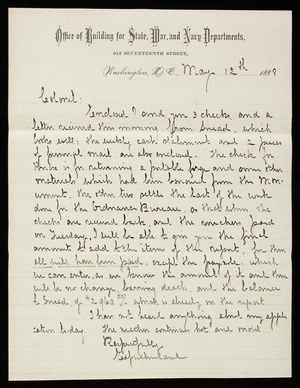 Office of Building for State, War, and Navy Departments,
612 SEVENTEENTH STREET,
Washington, D.C., May 12th 1888
Colonel:
Enclosed I send you 3 checks, and a
letter received this morning from Snead, which
looks well; the weekly cash statement and 2 pieces
of personal mail are also enclosed. The check for
is for returning a portable forge and some other
material which had been borrowed from the Mon-
ument. the other two settle the last of the work
done for the Ordnance Bureau, as when the
checks are received back, and the vouchers paid
on Tuesday, I will be able to give you the final
amount to add to the items of the report, for then
all will have been paid, except the payrolls which
we can enter, as we know the amount of it and there
will be no change barring death, and the balance
to Snead of $2962 which is already on the report
I have not heard anything about my appli
cation to-day. The weather continues hot and moist
Respectfully